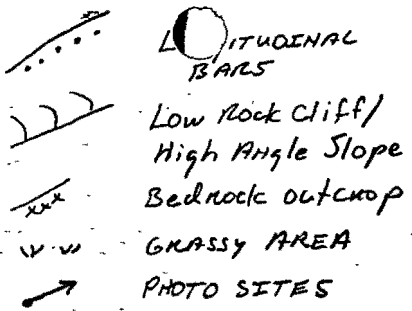 BARS
Low Rock Cliff/
High Angle Slope
Bedrock outcrop
GRASSY AREA
PHOTO SITES